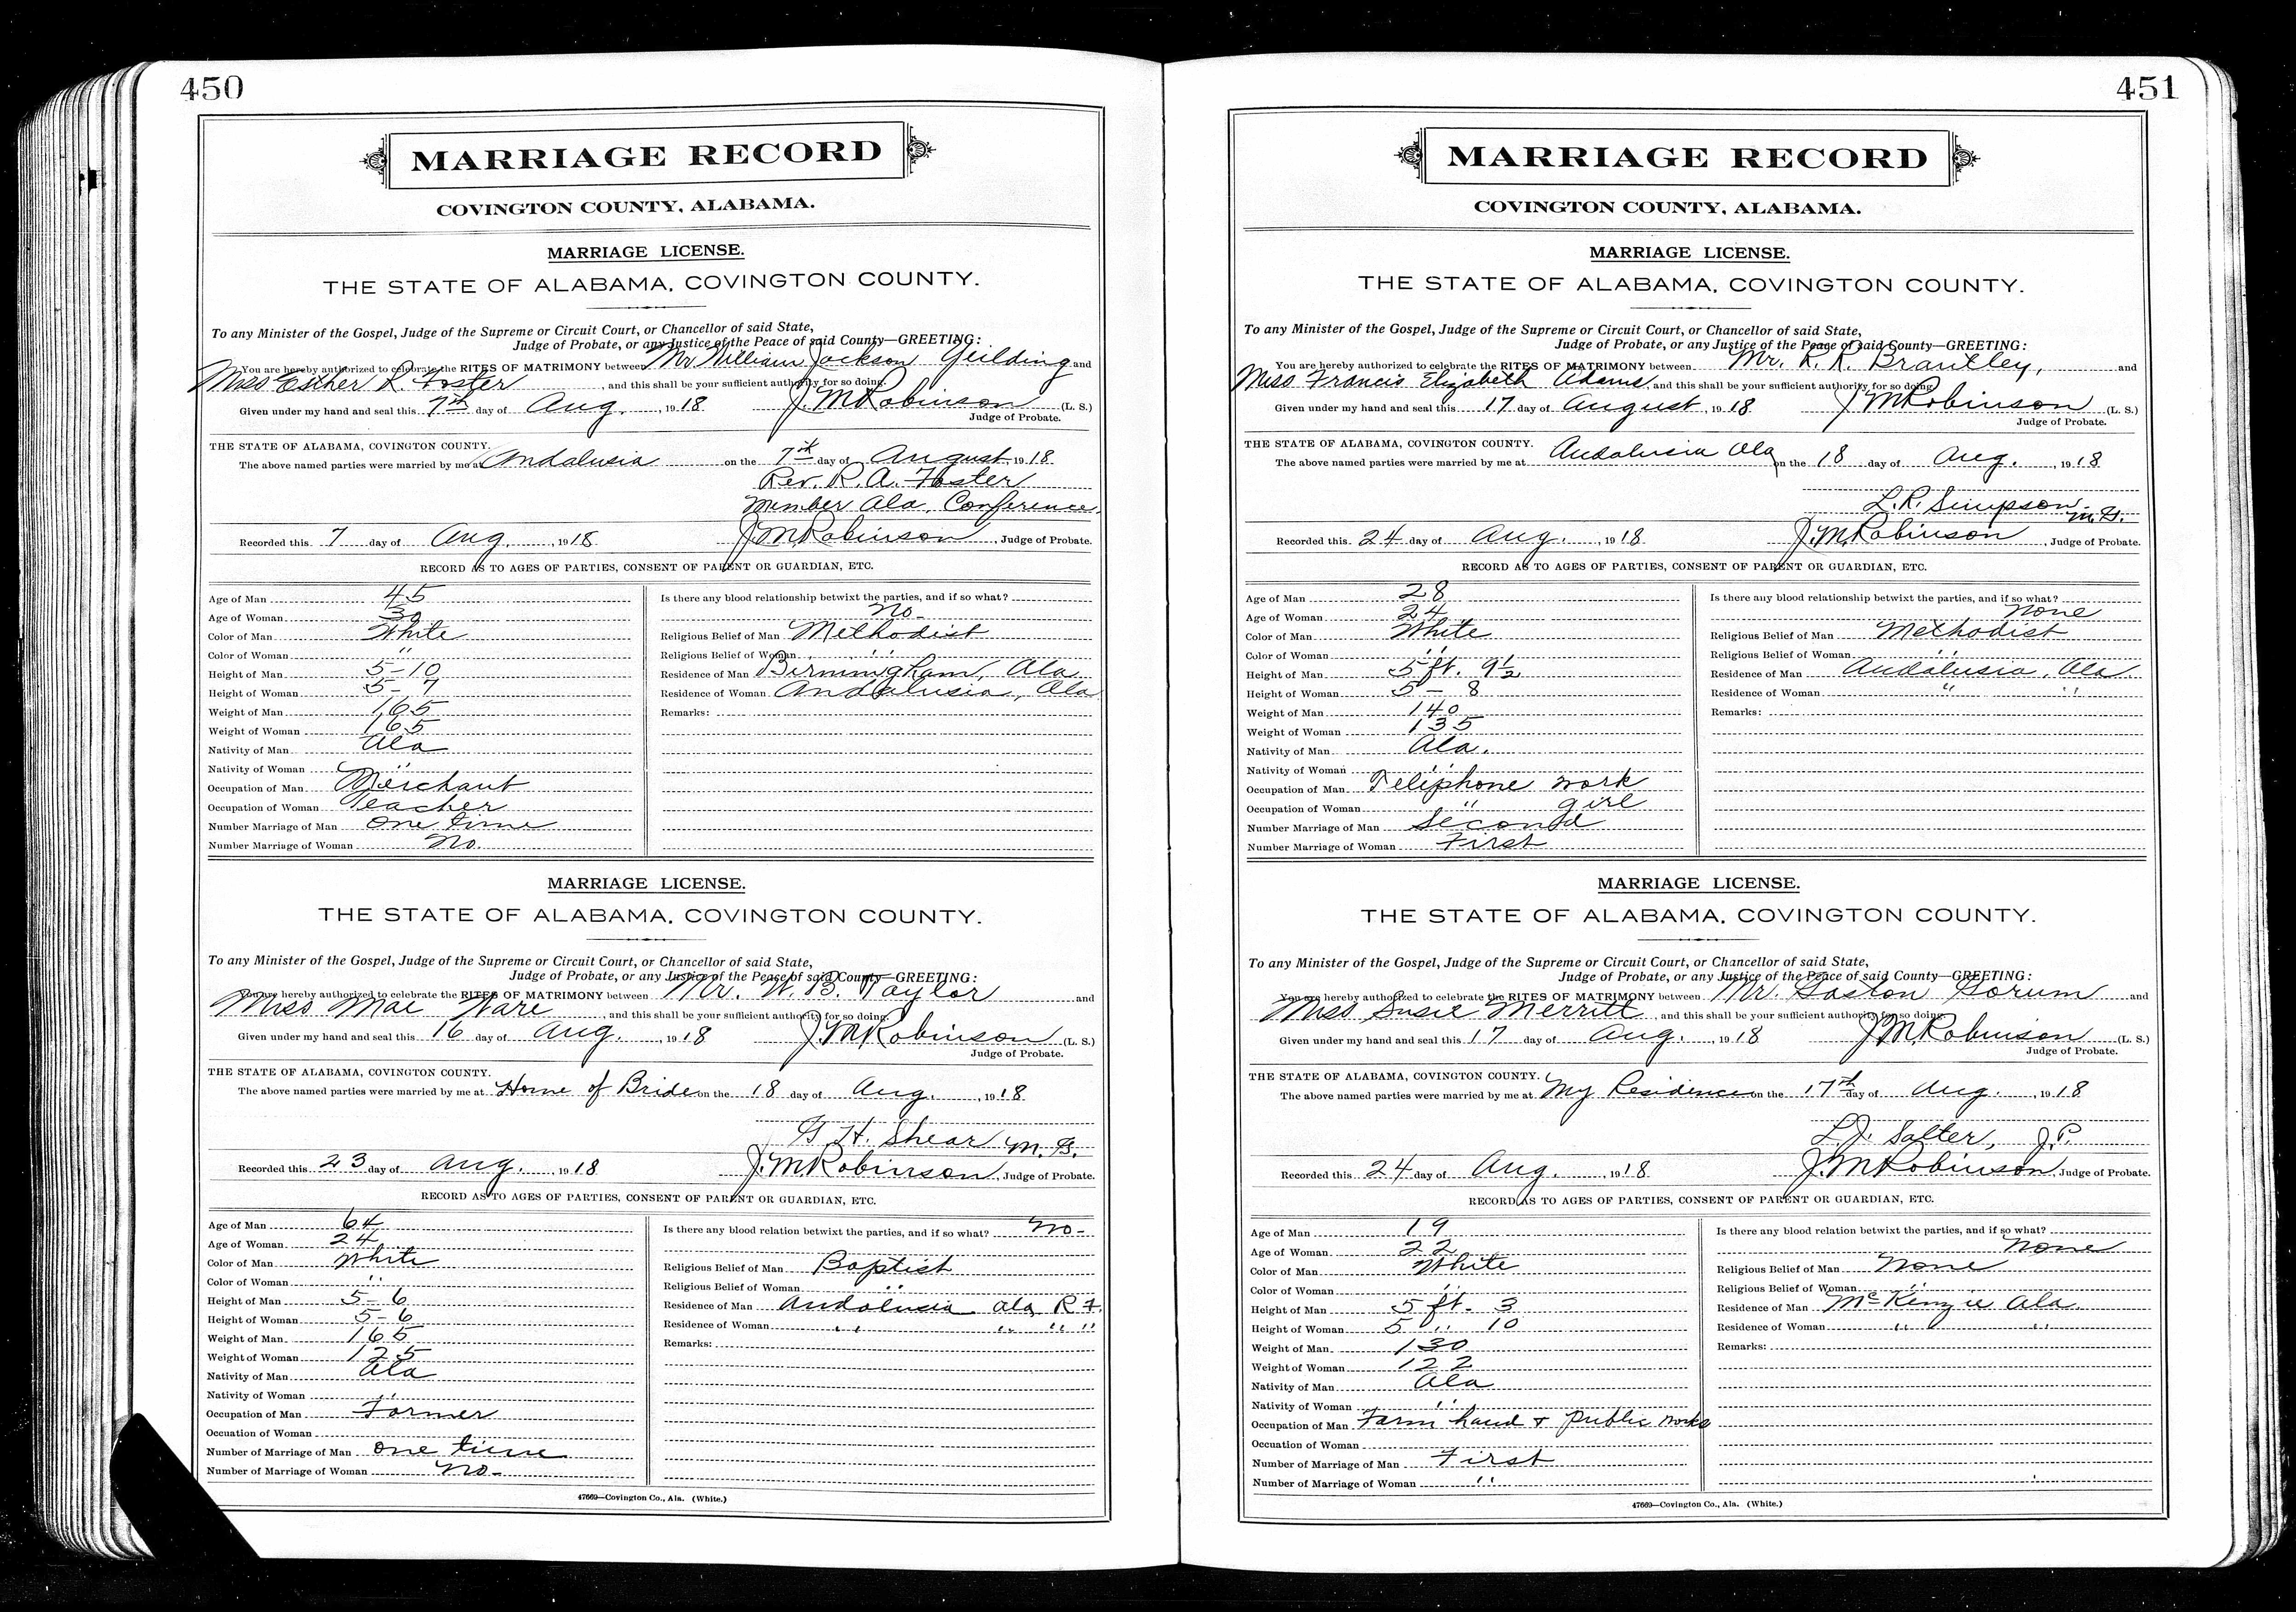 450
MARRIAGE RECORD
COVINGTON COUNTY, ALABAMA.
MARRIAGE LICENSE.
THE STATE OF ALABAMA, COVINGTON COUNTY.
To any Minister of the Gospel, Judge of the Supreme or Circuit Court, or Chancellor of said State,
Judge of Probate, or any Justice of the Peace of said County—GREETING:
You are hereby authorized to celebrate the RITES OF MATRIMONY between Mr William Jackson Yeilding and
Miss Esther R. Foster, and this shall be your sufficient authority for so doing.
Given under my hand and seal this 7th day of Aug. , 1918 J. M Robinson (L. S.)
Judge of Probate.
THE STATE OF ALABAMA, COVINGTON COUNTY.
The above named parties were married by me at Andalusia on the 7th day of August, 1918
Rev. R. A. Foster
Member Ala. Conference.
Recorded this 7 day of Aug. , 1918 J. M. Robinson , Judge of Probate.
RECORD AS TO AGES OF PARTIES, CONSENT OF PARENT OR GUARDIAN, ETC.
Age of Man 45
Age of Woman 30
Color of Man White
Color of Woman "
Height of Man 5-10
Height of Woman 5-7
Weight of Man 165
Weight of Woman 165
Nativity of Man Ala
Nativity of Woman "
Occupation of Man Merchant
Occupation of Woman Teacher
Number Marriage of Man One time
Number Marriage of Woman No.
Is there any blood relationship betwixt the parties, and if so what?
No-
Religious Belief of Man Methodist
Religious Belief of Woman "
Residence of Man Birmingham, Ala.
Residence of Woman Andalusia, Ala
Remarks:
MARRIAGE LICENSE.
THE STATE OF ALABAMA, COVINGTON COUNTY.
To any Minister of the Gospel, Judge of the Supreme or Circuit Court, or Chancellor of said State,
Judge of Probate, or any Justice of the Peace of said County—GREETING:
You are hereby authorized to celebrate the RITES OF MATRIMONY between Mr. W. B. Taylor and
Miss Mae Ware , and this shall be your sufficient authority for so doing.
Given under my hand and seal this 16 day of Aug. , 1918 J. M Robinson (L. S.)
Judge of Probate.
THE STATE OF ALABAMA, COVINGTON COUNTY.
The above named parties were married by me at Home of Bride on the 18 day of Aug. , 1918
G. H. Shear M. G.
Recorded this 23 day of Aug. , 1918 J. M Robinson , Judge of Probate.
RECORD AS TO AGES OF PARTIES, CONSENT OF PARENT OR GUARDIAN, ETC.
Age of Man 64
Age of Woman 24
Color of Man White
Color of Woman "
Height of Man 5-6
Height of Woman 5-6
Weight of Man 165
Weight of Woman 125
Nativity of Man Ala
Nativity of Woman "
Occupation of Man Farmer
Occuation of Woman
Number of Marriage of Man one time
Number of Marriage of Woman No-
Is there any blood relation betwixt the parties, and if so what? No-
Religious Belief of Man Baptist
Religious Belief of Woman "
Residence of Man Andalusia Ala R 7.
Residence of Woman " " " "
Remarks:
47669—Covington Co., Ala. (White.)
451
MARRIAGE RECORD
COVINGTON COUNTY, ALABAMA.
MARRIAGE LICENSE.
THE STATE OF ALABAMA, COVINGTON COUNTY.
To any Minister of the Gospel, Judge of the Supreme or Circuit Court, or Chancellor of said State,
Judge of Probate, or any Justice of the Peace of said County—GREETING:
You are hereby authorized to celebrate the RITES OF MATRIMONY between Mr. R. R. Brantley, and
Miss Francis Elizabeth Adams, and this shall be your sufficient authority for so doing.
Given under my hand and seal this 17 day of August , 1918 J M Robinson (L. S.)
Judge of Probate.
THE STATE OF ALABAMA, COVINGTON COUNTY.
The above named parties were married by me at Andalusia Ala on the 18 day of Aug. , 1918
L. R. Simpson, M. G.
Recorded this 24 day of Aug. , 1918 J. M. Robinson , Judge of Probate.
RECORD AS TO AGES OF PARTIES, CONSENT OF PARENT OR GUARDIAN, ETC.
Age of Man 28
Age of Woman 24
Color of Man White
Color of Woman "
Height of Man 5 ft. 9½
Height of Woman 5 - 8
Weight of Man 140
Weight of Woman 135
Nativity of Man Ala.
Nativity of Woman "
Occupation of Man Telephone work
Occupation of Woman " girl
Number Marriage of Man Second
Number Marriage of Woman First
Is there any blood relationship betwixt the parties, and if so what?
None
Religious Belief of Man Methodist
Religious Belief of Woman "
Residence of Man Andalusia, Ala.
Residence of Woman " "
Remarks:
MARRIAGE LICENSE.
THE STATE OF ALABAMA, COVINGTON COUNTY.
To any Minister of the Gospel, Judge of the Supreme or Circuit Court, or Chancellor of said State,
Judge of Probate, or any Justice of the Peace of said County—GREETING:
You are hereby authorized to celebrate the RITES OF MATRIMONY between Mr. Gaston Gorum and
Miss Susie Merritt , and this shall be your sufficient authority for so doing.
Given under my hand and seal this 17 day of Aug. , 1918 J. M. Robinson (L. S.)
Judge of Probate.
THE STATE OF ALABAMA, COVINGTON COUNTY.
The above named parties were married by me at My Residence on the 17th day of Aug. , 1918
L. J. Salter, J. P.
Recorded this 24 day of Aug. , 1918 J. M Robinson, Judge of Probate.
RECORD AS TO AGES OF PARTIES, CONSENT OF PARENT OR GUARDIAN, ETC.
Age of Man 19
Age of Woman 22
Color of Man White
Color of Woman "
Height of Man 5 ft. 3
Height of Woman 5 " 10
Weight of Man 130
Weight of Woman 122
Nativity of Man Ala
Nativity of Woman "
Occupation of Man Farm hand + public works
Occuation of Woman
Number of Marriage of Man First
Number of Marriage of Woman "
Is there any blood relation betwixt the parties, and if so what?
None
Religious Belief of Man None
Religious Belief of Woman "
Residence of Man McKenzie Ala.
Residence of Woman " "
Remarks:
47669—Covington Co., Ala. (White.)